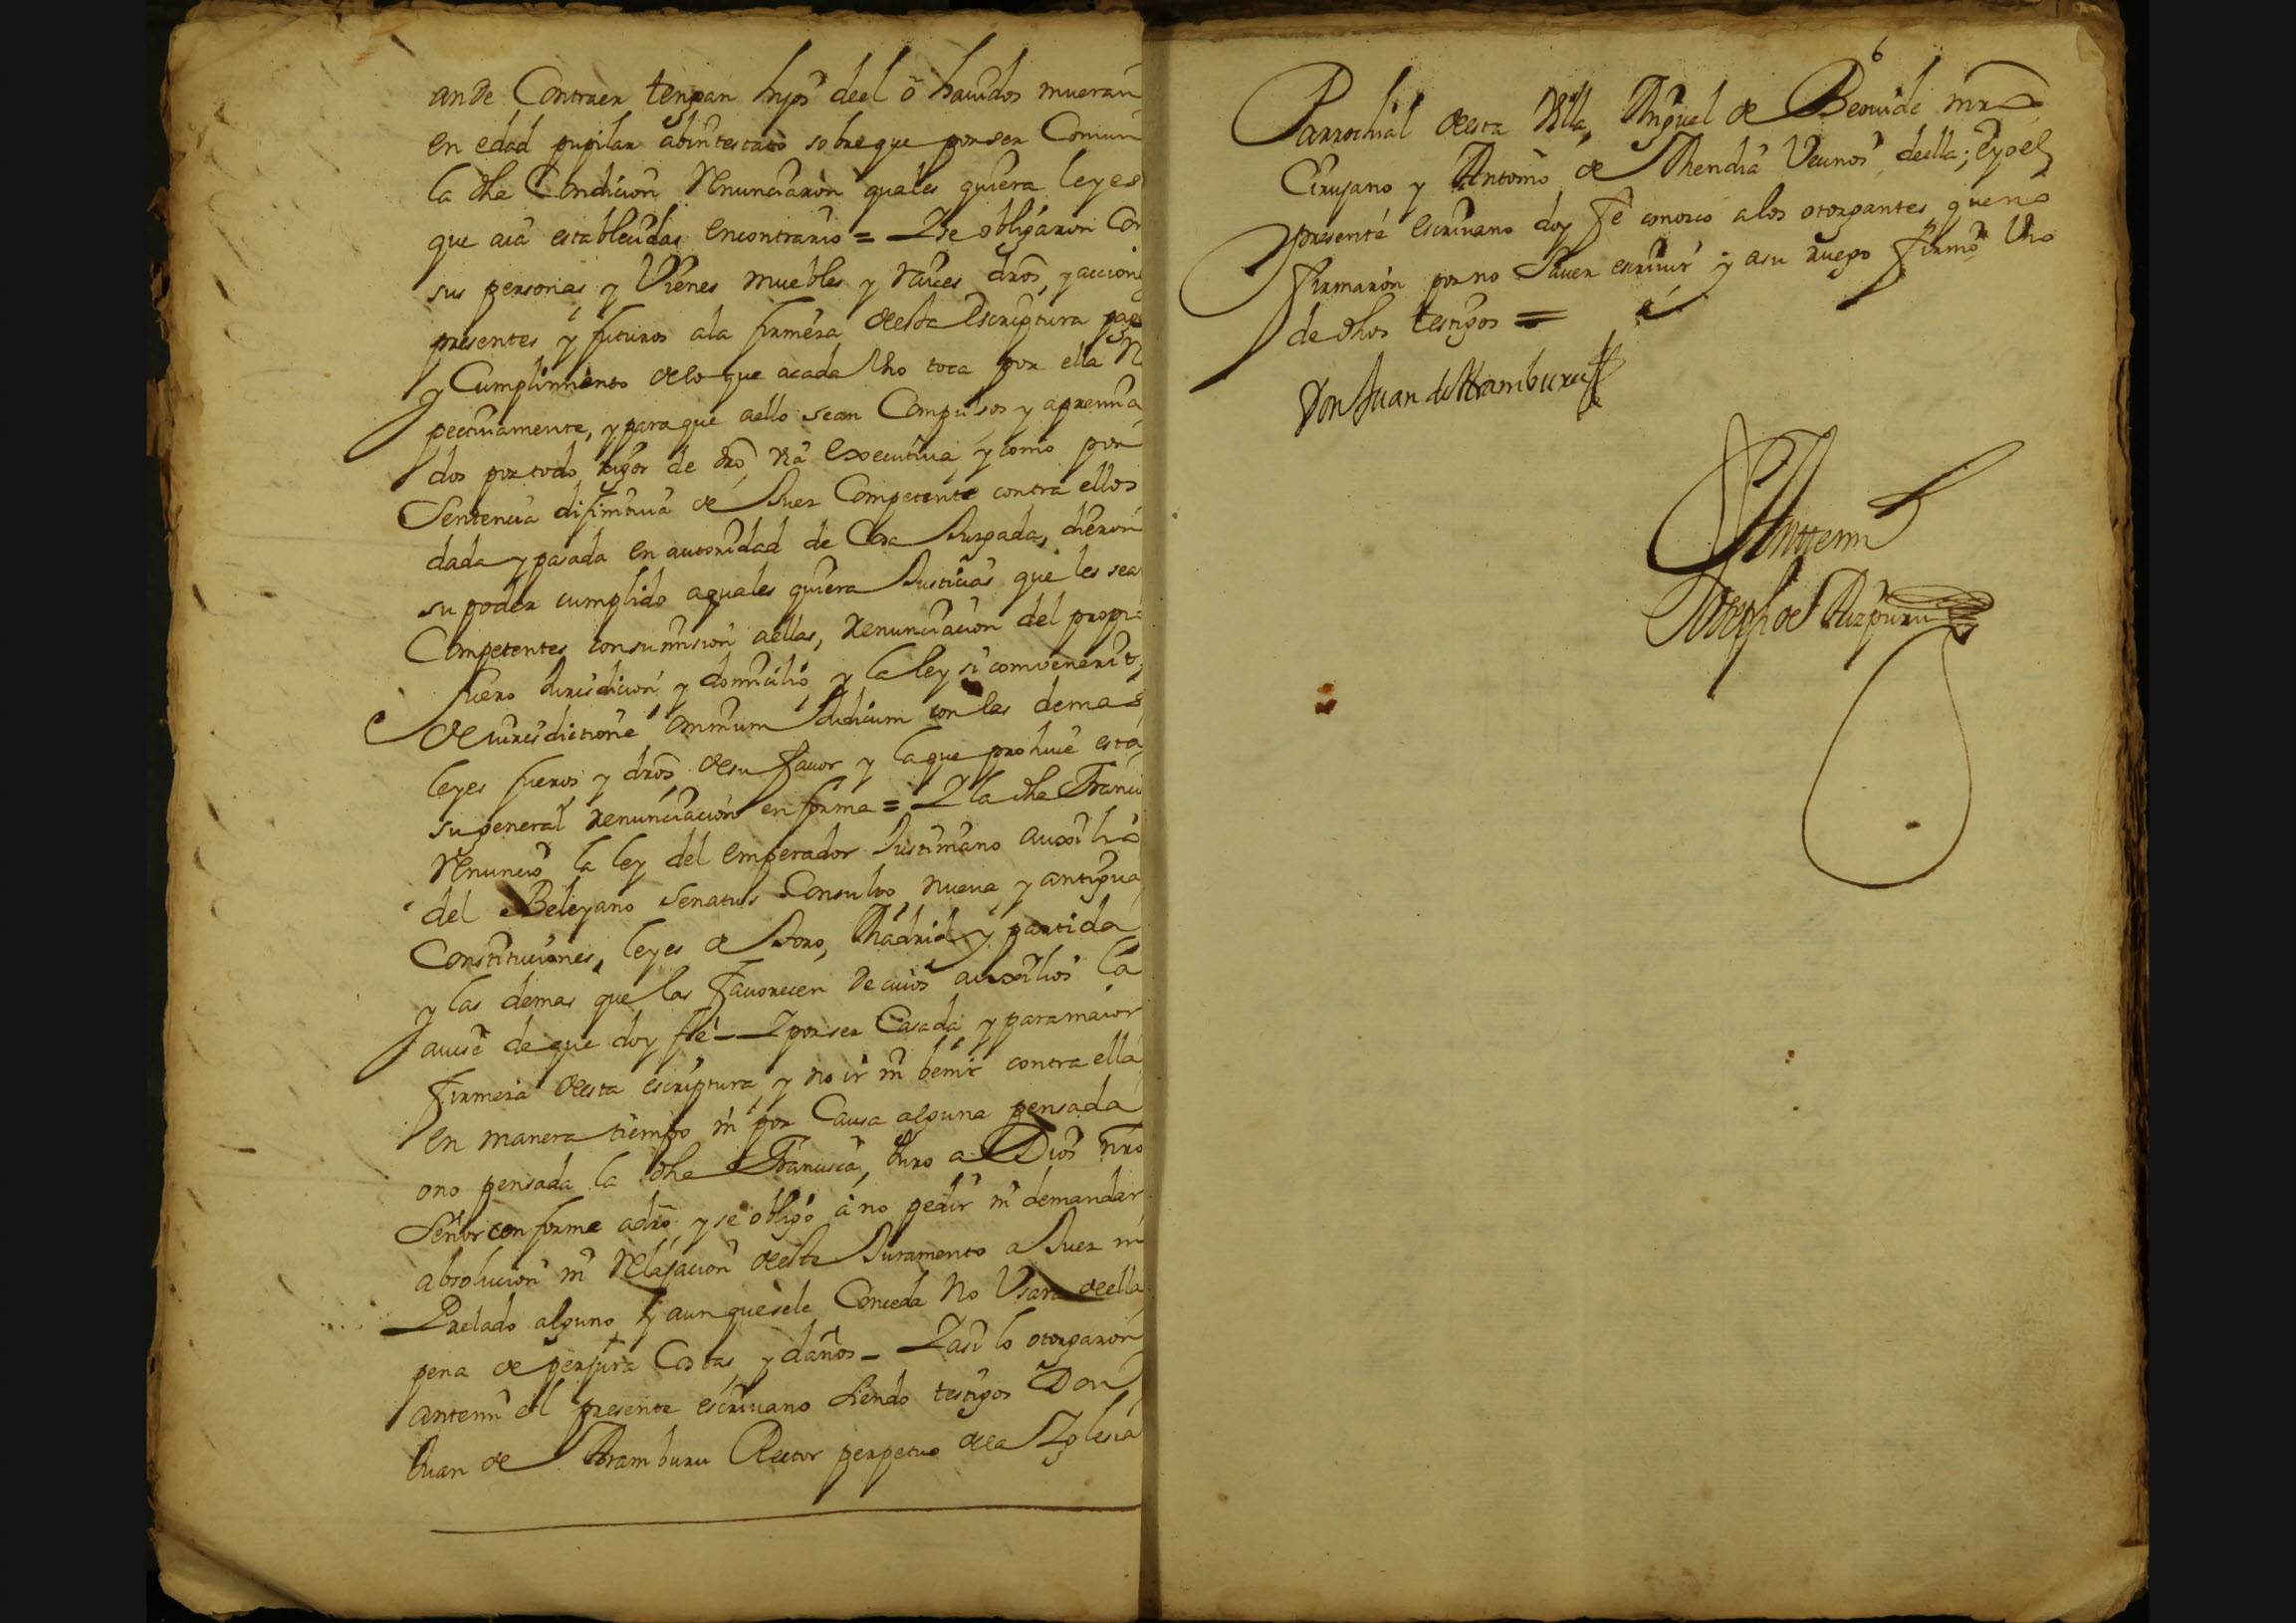 ande Contraer tengan hijos deel ô hauidos mueran
en edad pupilar abintestato sobre que por ser Comun
la dha Condicion Renunciaron quales quiera leyes
que aia establecidas en contrario = Y se obligaron Con
sus personas y Vienes muebles y raices dros, y accione
presentes y futuros ala firmeza desta Escriptura paga
y Cumplimiento delo que acada Vno toca por ella Re
pectiuamente, y para que aello sean Compulsos y apremia
dos por todo rigor de dro via executiua y como por
Sentencia difinitiua de Juez Competente contra ellos
dada y pasada en autoridad de Cosa Juzgada, dieron
su poder cumplido aquales quiera Justicias que les sea
Competentes con sumision aellas, renunciacion del propi
fuero Jurisdicion y domicilio, y la ley si comvenerit
de iurisdictione omnium Judicum con las demas
leyes fueros y dros desu fauor y la que prohiue esta
su general renunciacion en forma = Y la dha Franci
Renuncio la ley del emperador Justiniano auxilio
del Beleyano Senatus Consulto nueua y antigua
Constituciones, leyes de Toro, Madrid y partida
y las demas que las fauorecen de cuios auxilios la
auise de que doy fee - Y por ser Casada y para maior
firmeza desta escriptura, y no ir ni benir contra ella
en manera tiempo ni por Causa alguna pensada
ono pensada la dha Francisca, Juro a Dios nro
Señor en forma adro, y se obligo â no pedir ni demandar
absolucion ni Relajacion deeste Juramento a Juez ni
Prelado alguno y aunque sele Conceda No Vsara deella
pena de perjura Costas, y daños - Y asi lo otorgaron
antemi el presente escriuano siendo testigos Don
Juan de Aramburu Rector perpetuo dela Yglesia
6
Parrochial desta Villa, Miguel de Beouide mro
Cirujano y Antonio de Mendia Vecinos deella; e yo el
presente escriuano doy fê conozco alos otorgantes que no
firmaron por no Sauer escriuir y asu ruego firmô Vno
de dhos testigos =
Don Juan de Aramburu
Anttemi
Joseph de Aizpuru